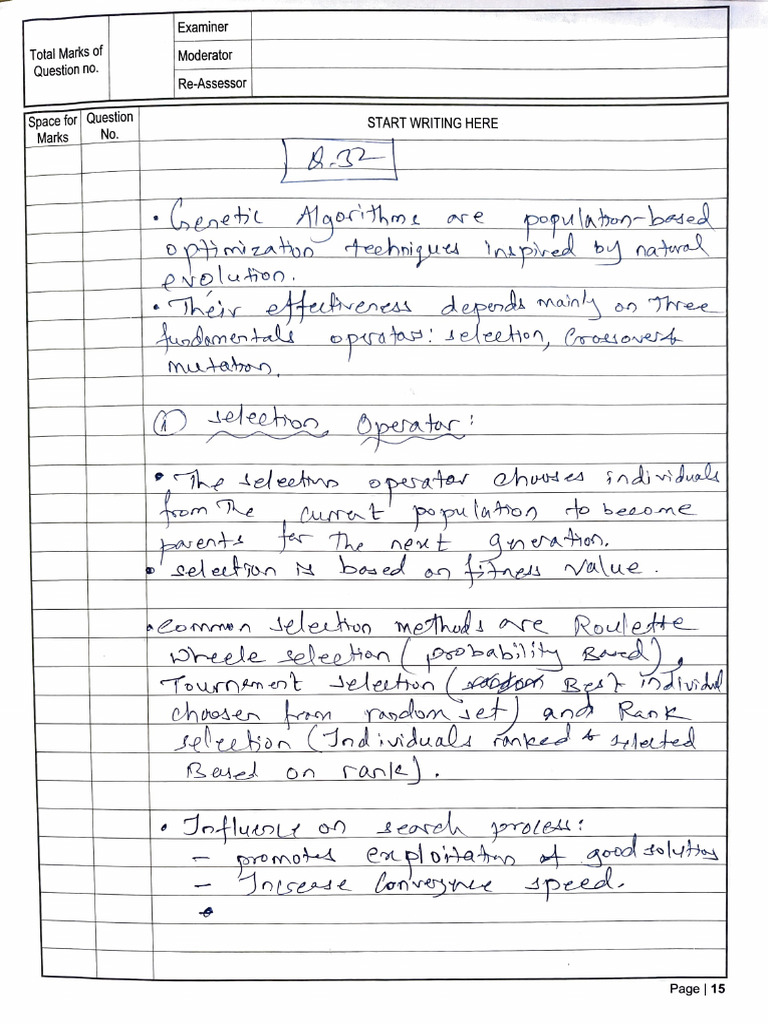 Total Marks of
Question no.
Examiner
Moderator
Re-Assessor
Space for
Marks
Question
No.
START WRITING HERE
Q.32
• Genetic Algorithms are population-based
optimization techniques inspired by natural
evolution.
• Their effectiveness depends mainly on three
fundamentals operators: selection, Crossover &
mutation.
① selection Operator:
• The selection operator chooses individuals
from The current population to become
parents for The next generation.
• selection is based on fitness value.
• common selection methods are Roulette
wheele selection (probability Based),
Tournement selection (random Best individual
choosen from random set) and Rank
selection (Individuals ranked & selected
Based on rank).
• Influence on search process:
– promotes exploitation of good solutions
– Increase Convergence speed.
Page | 15